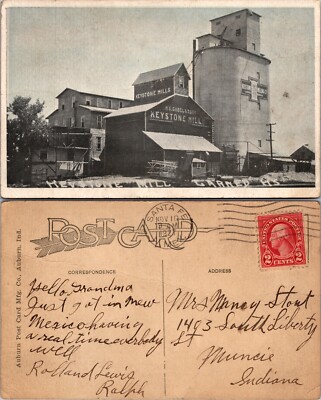 KEYSTONE MILLS
KEYSTONE MILL
KEYSTONE MILL
KEYSTONE MILL LARNED KS.
Auburn Post Card Mfg. Co., Auburn, Ind.
POST CARD
CORRESPONDENCE
ADDRESS
SANTA FE
NOV 10
1927
2 CENTS 2
Hello Grandma
Just got in new
Mexico having
a real time everybody
well
Rolland Lewis
Ralph
Mrs Nancy Stout
1493 South Liberty
St
Muncie
Indiana